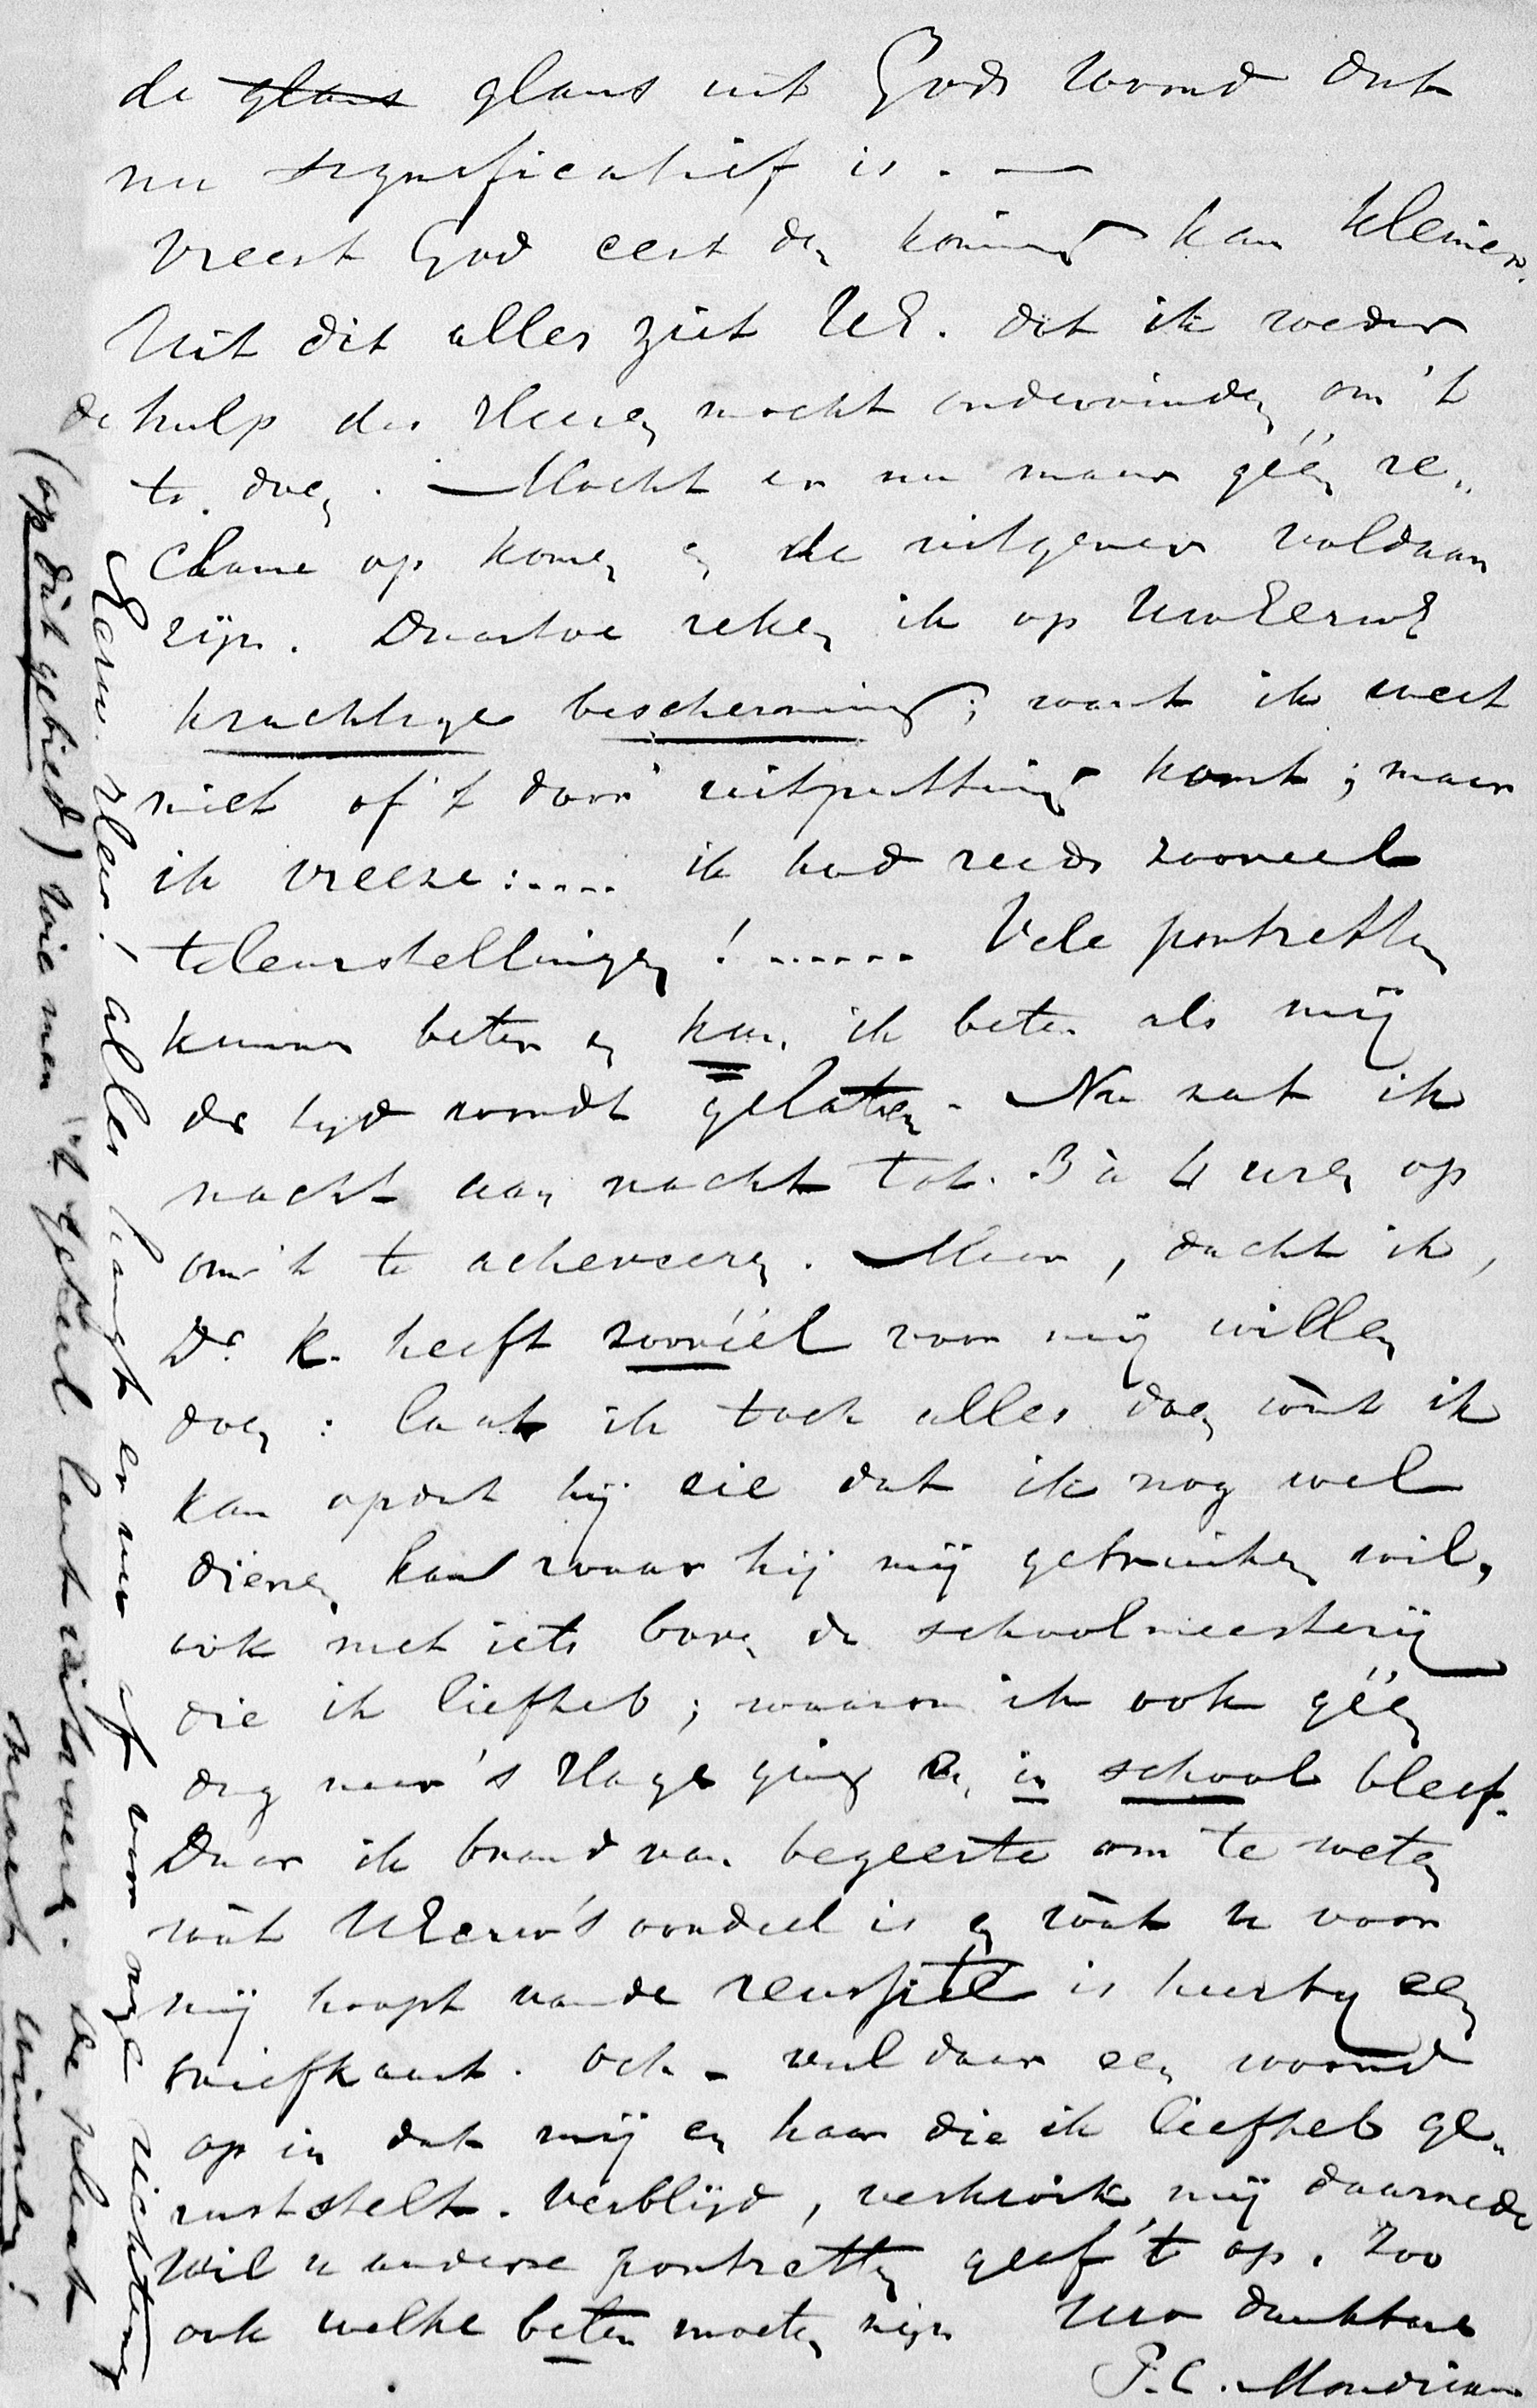 de ~~glans~~ glans uit Gods woord dat
nu significatief is. —
Vreest God eert den koning kan kleiner.
Uit dit alles ziet UE. dat ik weder
de hulp des Heeren mocht ondervinden om 't
te doen. — Mocht er nu maar géén re„
clame op komen en de uitgever voldaan
zijn. Daartoe reken ik op UwEerwE
krachtige bescherming; want ik weet
niet of 't door uitputting komt; maar
ik vreeze:..... ik had reeds zooveel
teleurstellingen!...... Vele portretten
kunnen beter en kan ik beter als mij
de tijd wordt gelaten. Nu zat ik
nacht aan nacht tot 3 à 4 uren op
om 't te acheveeren. Maar, dacht ik,
Dr. K. heeft zoovéél voor mij willen
doen: laat ik toch alles doen wàt ik
kan opdat hij zie dat ik nog wel
dienen kan waar hij mij gebruiken wil,
ook met iets boven de schoolmeesterij
die ik liefheb; waarom ik ook géén
dag naar 's Hage ging en in school bleef.
Daar ik brand van begeerte om te weten
wàt UEerw's oordeel is en wàt u voor
mij hoopt van de reussite is hierby een
briefkaart. Och - vul daar een woord
op in dat mij en haar die ik liefheb ge„
ruststelt. Verblijd, verkwik mij daarmede
Wil u andere portretten geef 't op. Zoo
ook welke beter moeten zijn Uw dankbare
P.C. Mondriaan
Eerw. Heer! alles hangt er nu af voor mijn richting
(op dàt gebied) wie men 't geheel laat uitvoeren. De plaat
moet winnen!